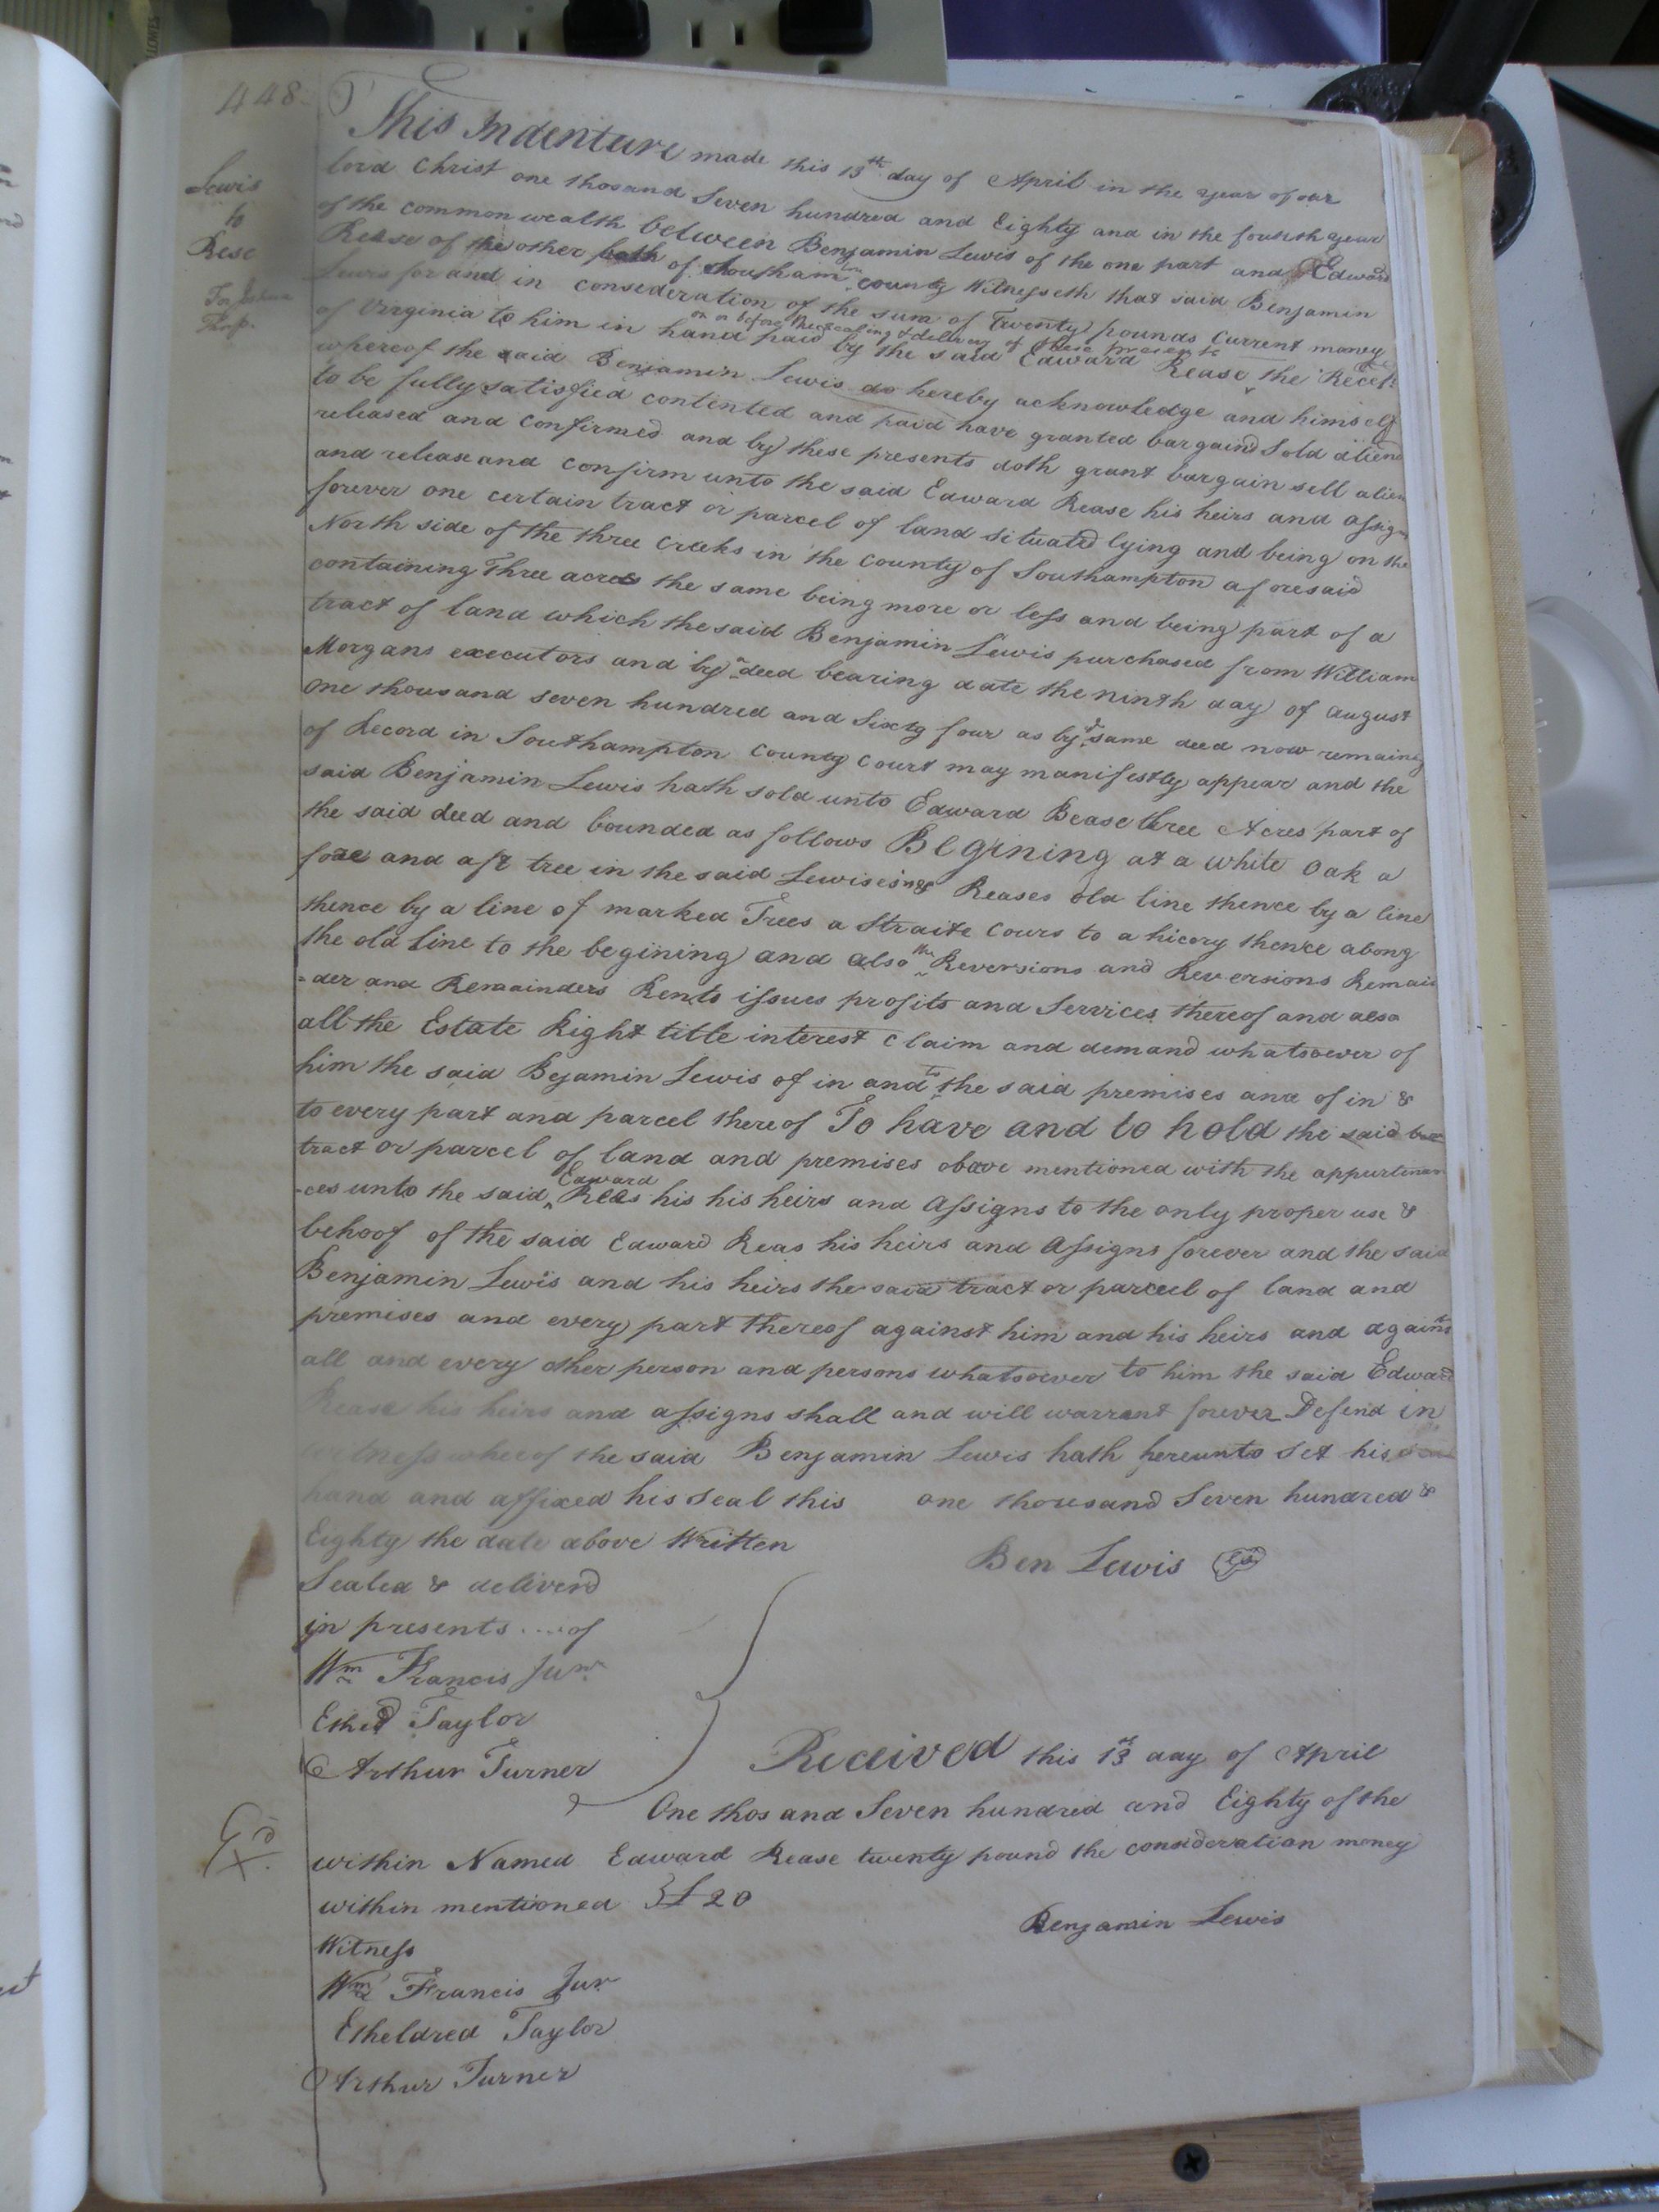 448
Lewis
to
Rese
This Indenture made this 13th day of April in the year of our
lord Christ one thosand Seven hundred and Eighty and in the fourth year
of the common wealth between Benjamin Lewis of the one part and Edward
Rease of the other of Southamtn county Witnesseth that said Benjamin
Lewis for and in consederation of the sum of Twenty pounds Current money
on or before the Sealing & delivery of these presents
of Virginia to him in hand paid by the said Edward Rease the Recept
whereof the said Benjamin Lewis do hereby acknowledge and himself
to be fully satisfied contented and paid have granted bargaind Sold aliend
released and confirmed and by these presents doth grant bargain sell alien
and release and confirm unto the said Edward Rease his heirs and assigns
forever one certain tract or parcel of land situated lying and being on the
North side of the three creeks in the county of Southampton aforesaid
containing Three acres the same being more or less and being part of a
tract of land which the said Benjamin Lewis purchased from William
Morgans executors and by a deed bearing date the ninth day of august
one thousand seven hundred and Sixty four as by ye same deed now remaing
of Record in Southampton County Court may manifestly appear and the
said Benjamin Lewis hath sold unto Edward Rease three Acres part of
the said deed and bounded as follows Begining at a white Oak a
fore and aft tree in the said Lewises & Reases old line thence by a line
thence by a line of marked Trees a Straite Cours to a hicory thence along
the old line to the begining and also the Reversions and Reversions Remain
=der and Remainders Rents issues profits and Services thereof and also
all the Estate Right title interest Claim and demand whatsoever of
him the said Bejamin Lewis of in and to the said premises and of in &
to every part and parcel thereof To have and to hold the said
tract or parcel of land and premises obove mentioned with the appurtenan
Edward
-ces unto the said Reas his his heirs and Assigns to the only proper use &
behoof of the said Edward Reas his heirs and Assigns forever and the said
Benjamin Lewis and his heirs the said tract or parceel of land and
premises and every part thereof against him and his heirs and against
all and every other person and persons whatsoever to him the said Edward
Rease his heirs and assigns shall and will warrant forever Defend in
witness whereof the said Benjamin Lewis hath hereunto Set his
hand and affixed his Seal this one thousand Seven hundred &
Eighty the date above Written
Ben Lewis LS
Sealed & deliverd
in presents .... of
Wm Francis Junr
Etheld Taylor
Arthur Turner
Received this 13th day of April
One thosand Seven hundred and Eighty of the
within Named Edward Rease twenty pound the consideration money
within mentioned } £20
Benjamin Lewis
Witness
Wm Francis Jur
Etheldred Taylor
Arthur Turner